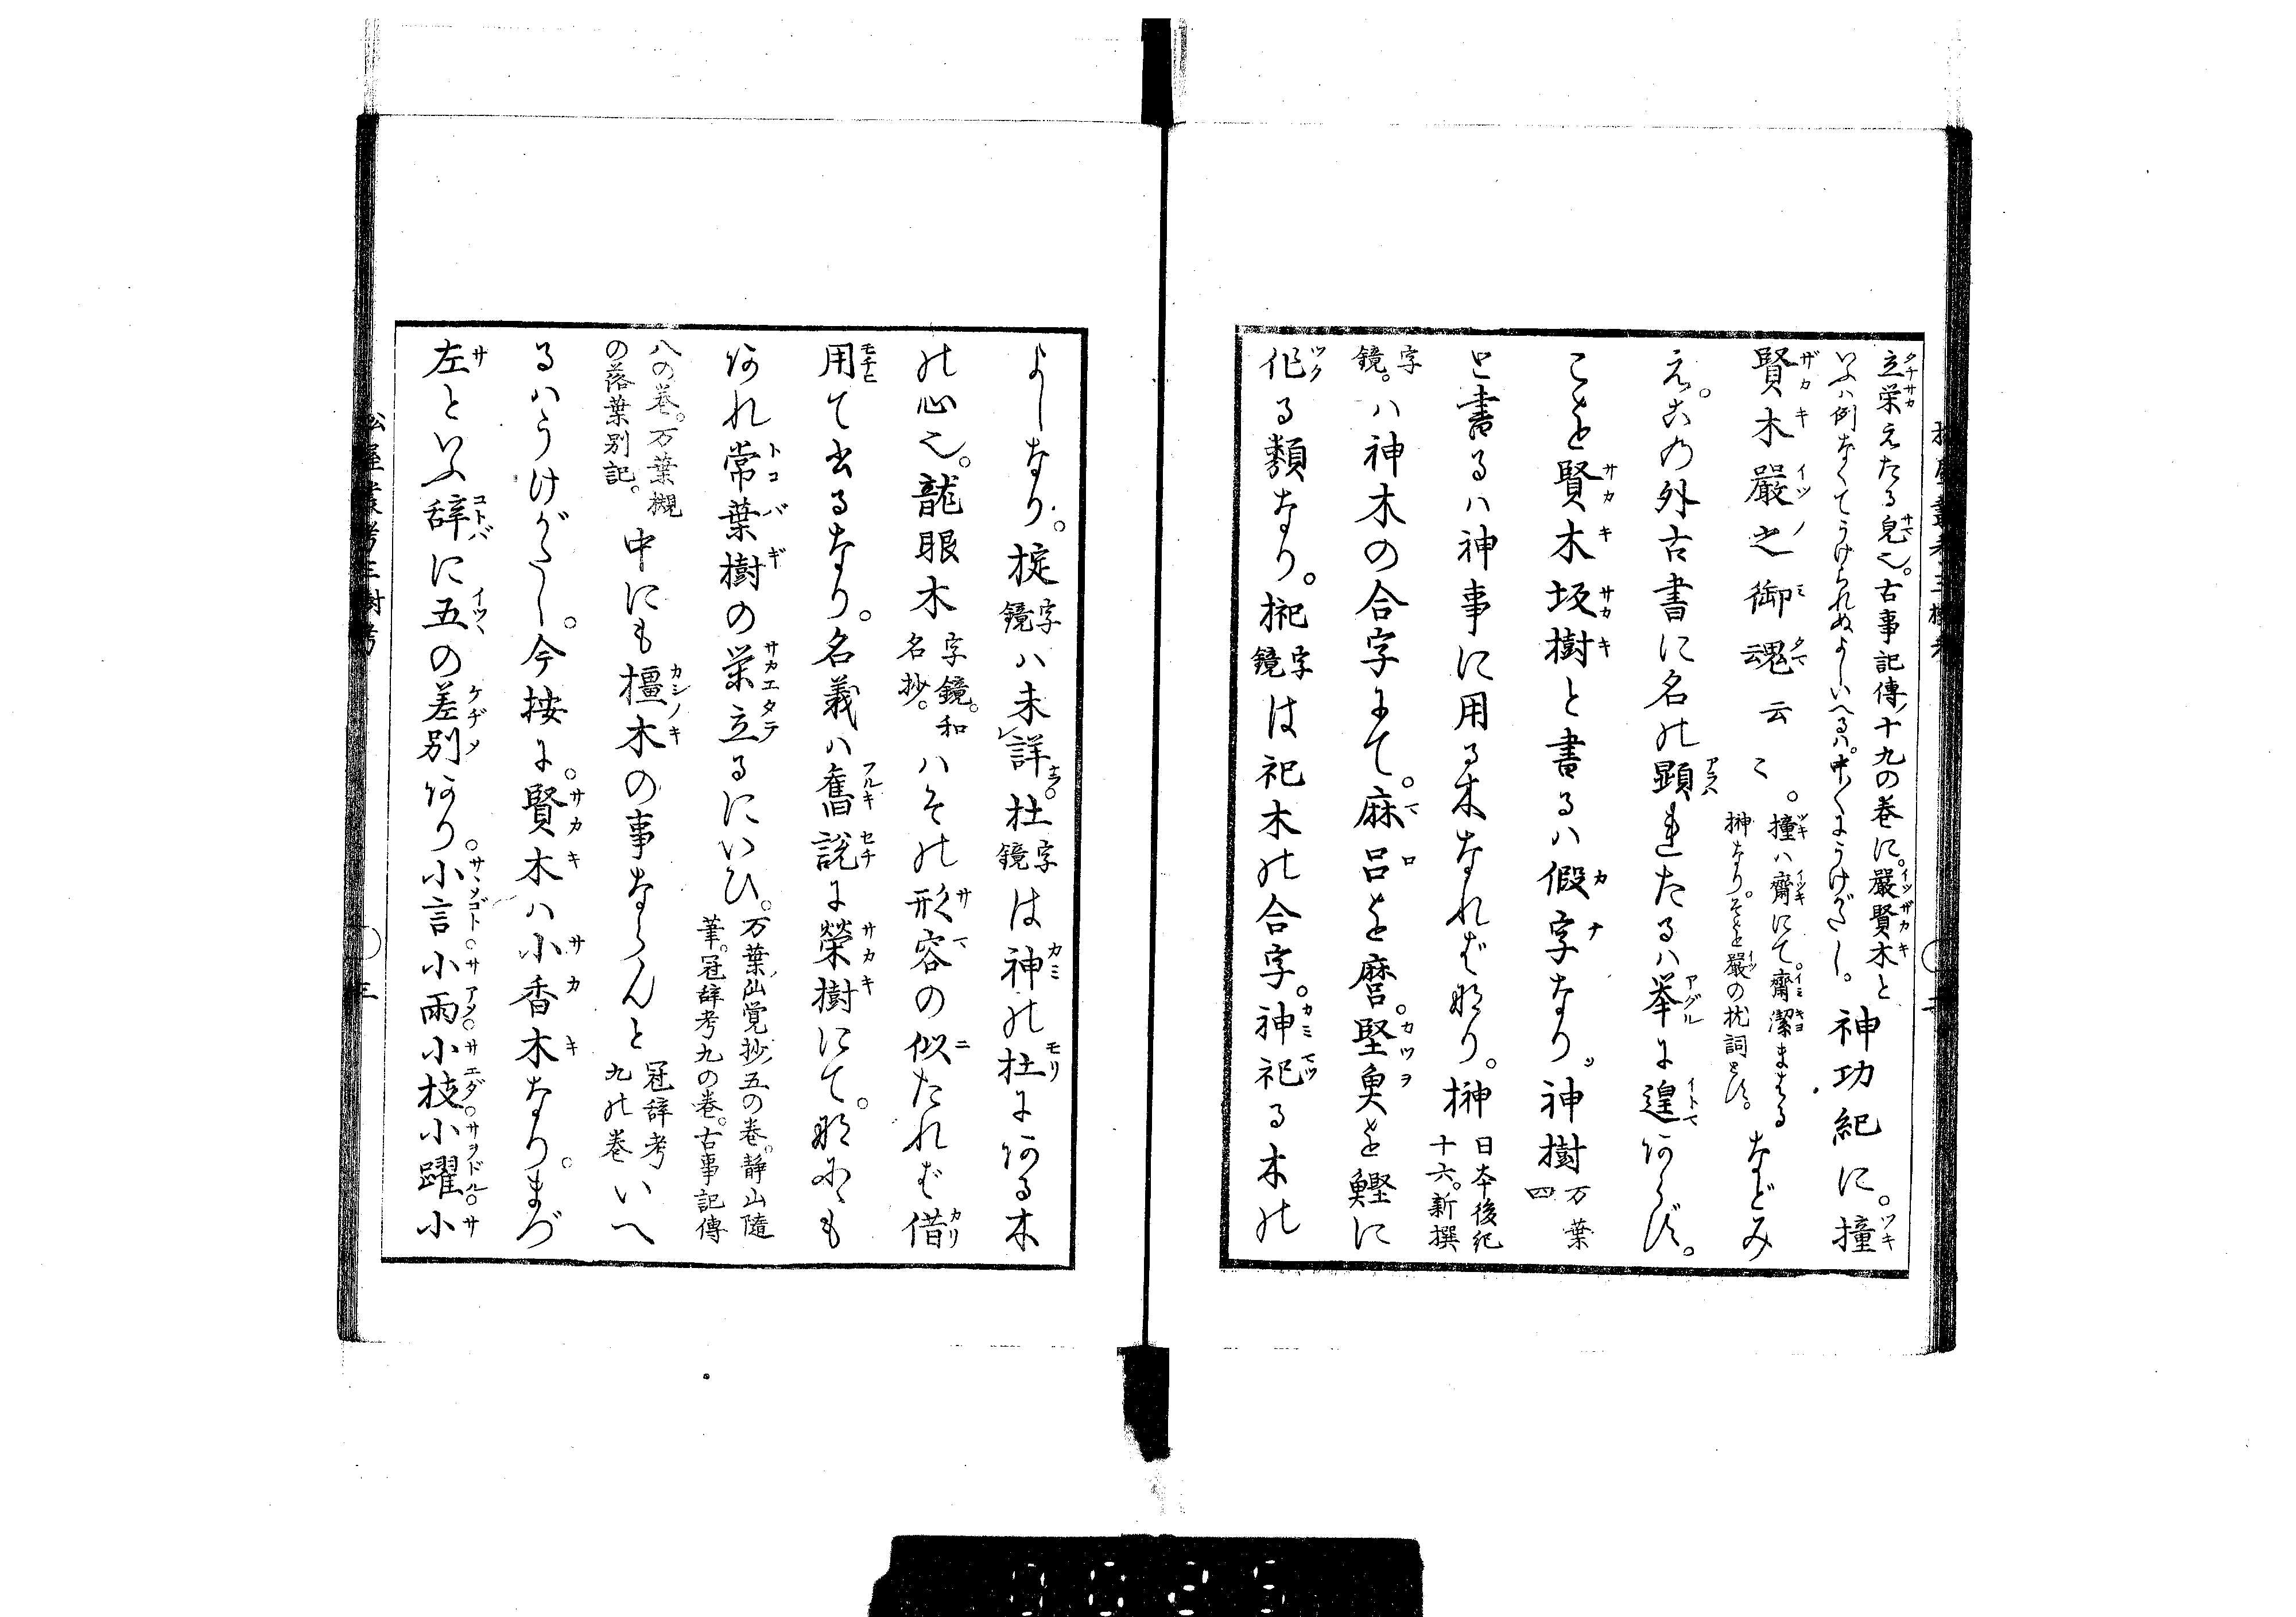 立栄えたる皃也。古事記傳ノ十九の巻に。嚴賢木と
いふハ例なくてうけられぬよしいへるハ。中〳〵にうけがたし。神功紀に。撞
賢木嚴之御魂云々。撞ハ齋にて。齋潔まはる
榊なり。そを嚴の枕詞とす。などみ
え。この外古書に名の顕れたるハ挙に遑あらず。
ことを賢木坂樹と書るハ假字なり。神樹万葉四
と書るハ神事に用る木なればなり。榊日本後紀十六。新撰
字鏡。ハ神木の合字にて。麻呂を麿。堅魚を鰹に
作る類なり。䄫字鏡は祀木の合字。神祀る木の
よしなり。椗字鏡ハ未詳。杜字鏡は神の杜にある木
の心也。龍眼木字鏡。和名抄。ハその形容の似たれば借
用て出るなり。名義ハ舊説に榮樹にて。なにも
あれ常葉樹の栄立るにいひ。万葉ノ仙覚抄五の巻。静山隨
筆。冠辞考九の巻。古事記傳
八の巻。万葉槻
の落葉別記。中にも橿木の事ならんと冠辞考九の巻いへ
るハうけがたし。今按に。賢木ハ小香木なり。まづ
左といふ辞に五の差別あり。小言小雨小枝小躍小
松屋叢考三樹考 〇三